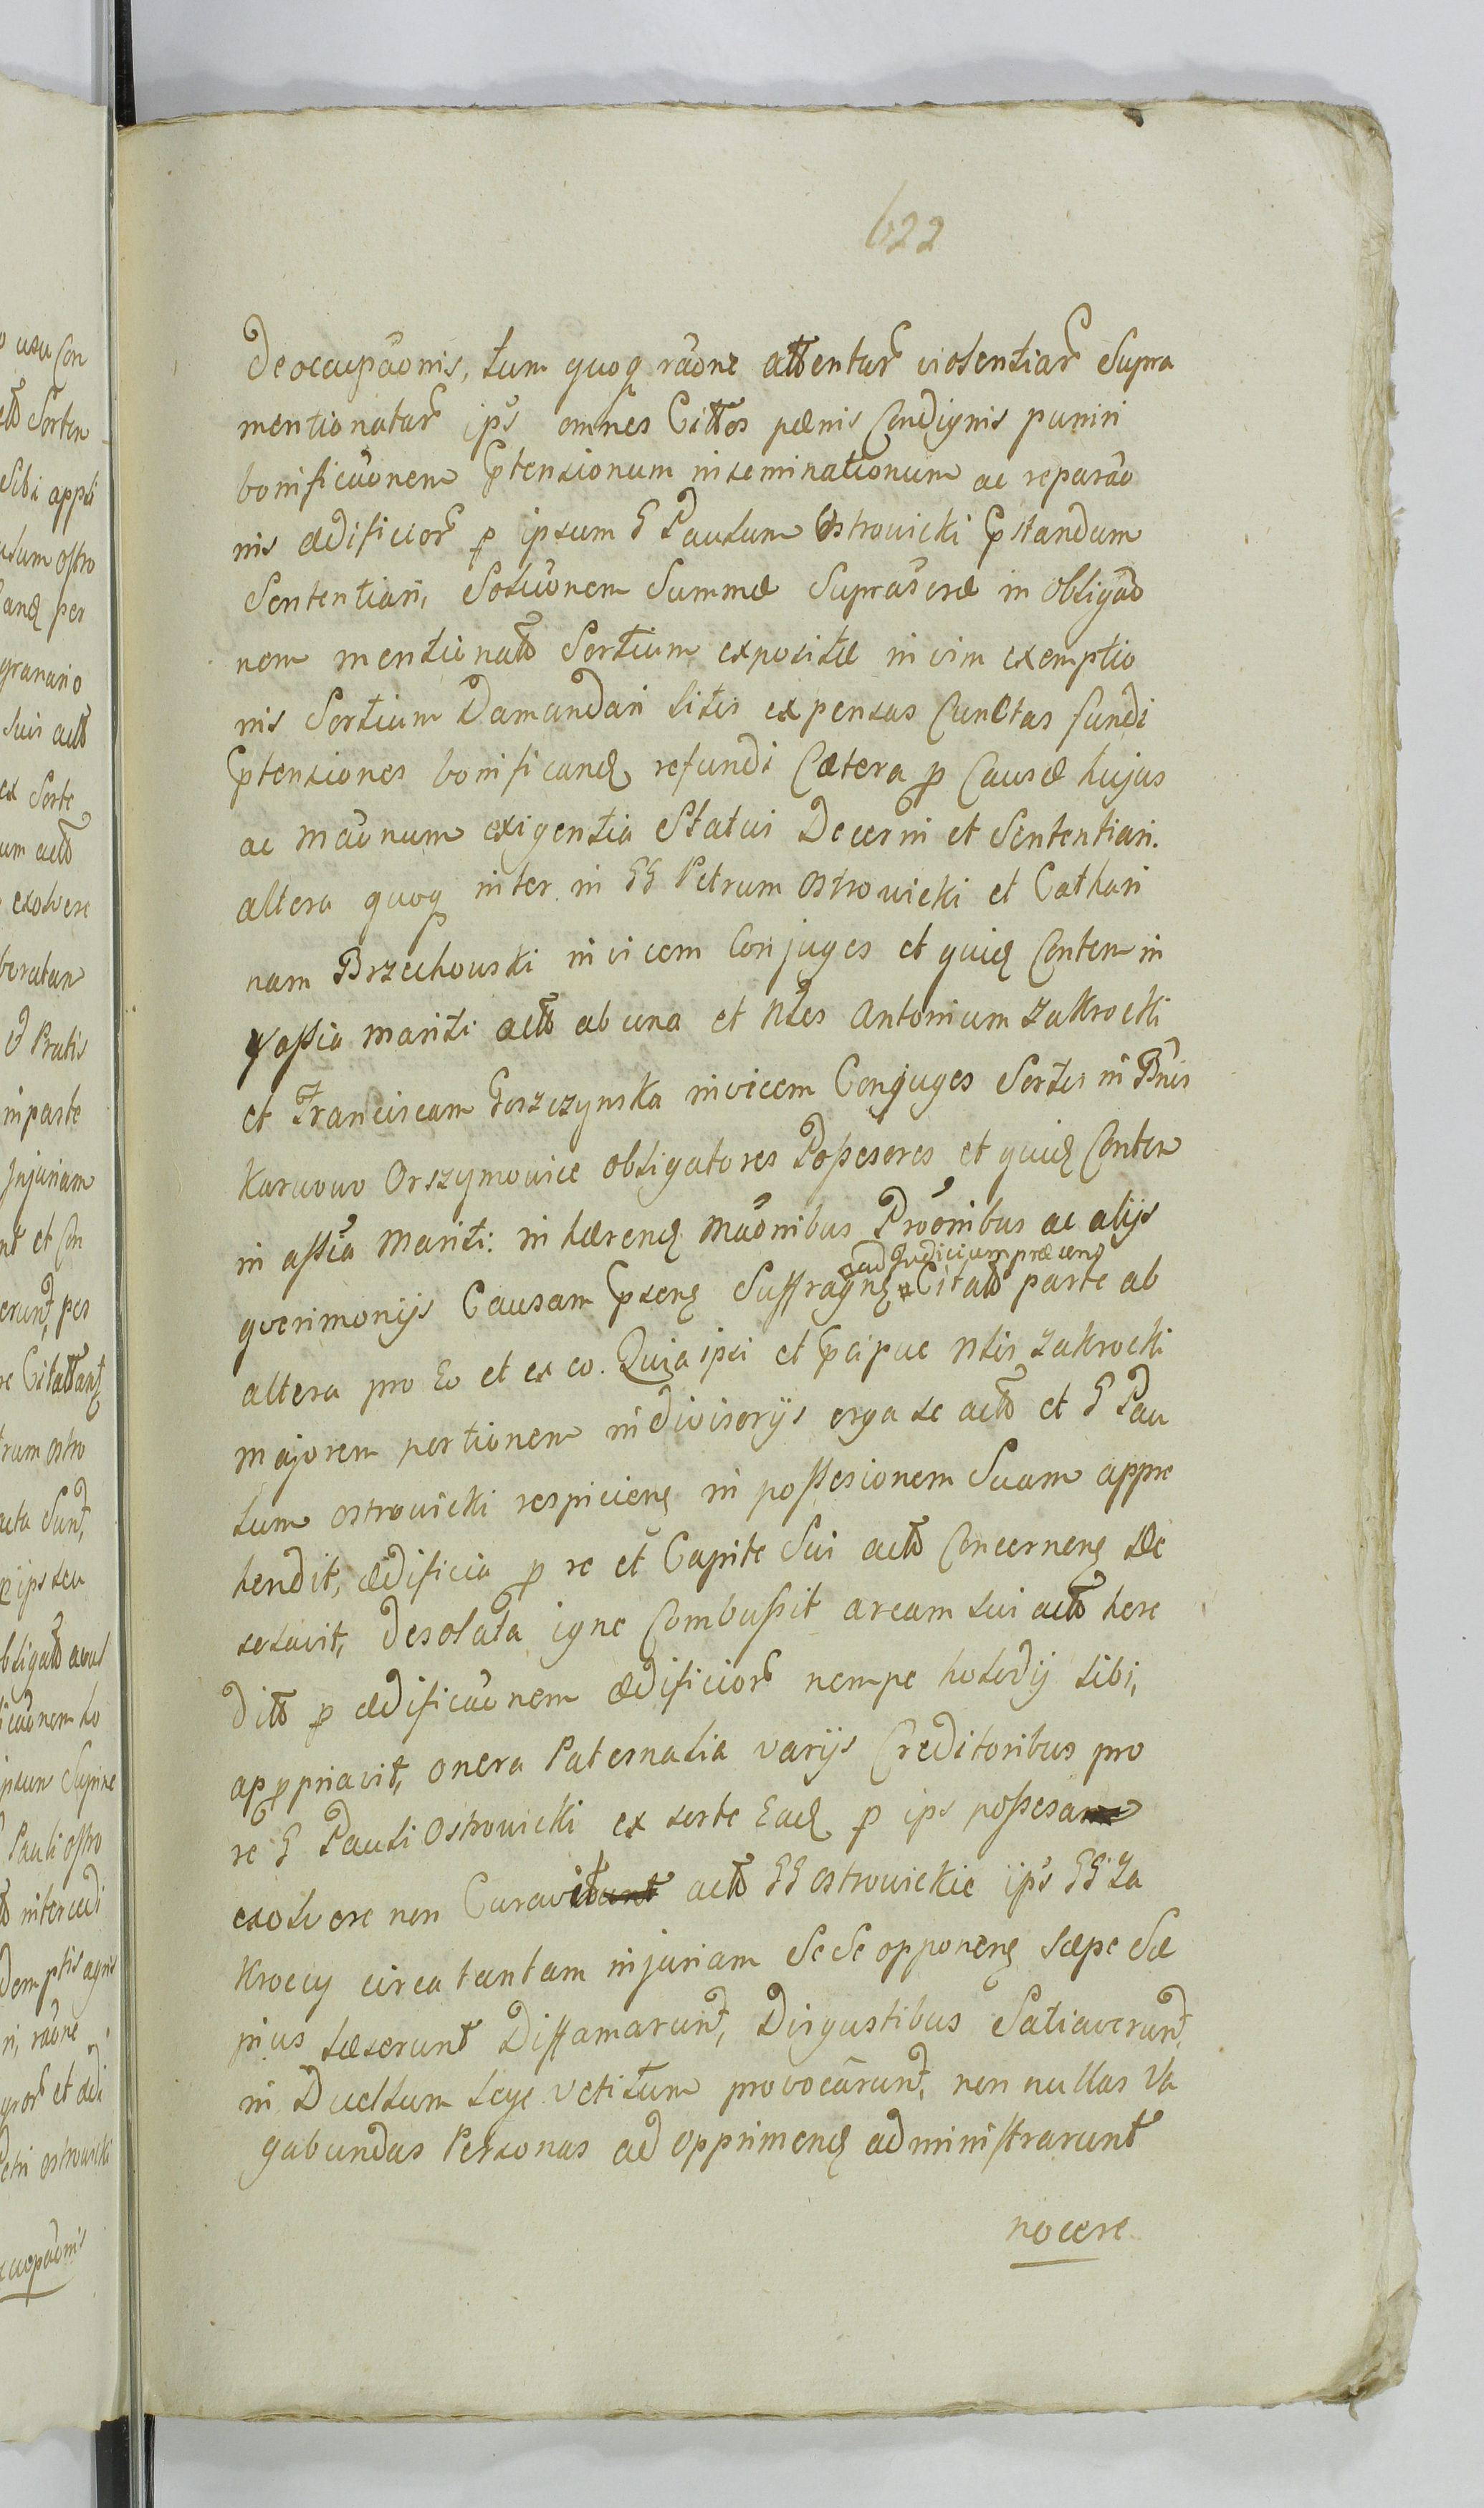 622
Deocupaõnis, tum quoq raõne attentar violentiar Supra
mentionatar ips omnes Cittos pænis Condignis puniri
bonificaõnem Ptensionum inseminationum ac reparaõ
nis ædificior p ipsum G Paulum Ostrowicki Pstandum
Sententiari, Soluõnem Summæ Suprascræ in obligaõ
nem mentionatõ Sortium expositæ in vim exemptio
nis Sortium Damandari litis expensas Cunctas fundi
Ptensiones bonificand refundi Cætera p Causæ hujus
ac maõnum exigentia Statui Decerni et Sententiari.
altera quoq inter in GG Petrum Ostrowicki et Cathari
nam Brzechowski invicem Conjuges et quid Conten in
assia mariti actõ ab una et Nles Antonium Zakrocki
et Franciscam Goszczynska invicem Conjuges Sortis in Bnis
Karwowo Orszymowice obligatores Possesores et quid Conten
in assia Mariti: in hærend maõnibus Proõnibus ac alijs
querimonijs Causam Psens Suffragns Citatõ parte ab
ad Judicium præsens
altera pro Eo et ex eo. Quia ipsi et Pcipue Nlis Zakrocki
majorem portionem in divisorijs erga se actõ et G Pau
lum Ostrowicki respiciens in possesionem Suam appre
hendit, ædificia p re et Capite Sui actõ Concernens De
solavit, Desolata igne Combussit aream sui actõ here
ditõ p ædificaõnem ædificior nempe holodij sibi,
appropriavit, onera Paternalia varijs Creditoribus pro
re G Pauli Ostrowicki ex sorte Ead p ips possesa
exolvere non Curavit actõ GG Ostrowickie ips GG Za
kroccy circa tantam injuriam Sese opponens Sæpe Sæ
pius læserunt Diffamarunt, Disgustibus Satiaverunt,
in Duellum lege vetitum provocarunt, non nullas Va
gabundas Personas ad opprimend administrarunt
nocere